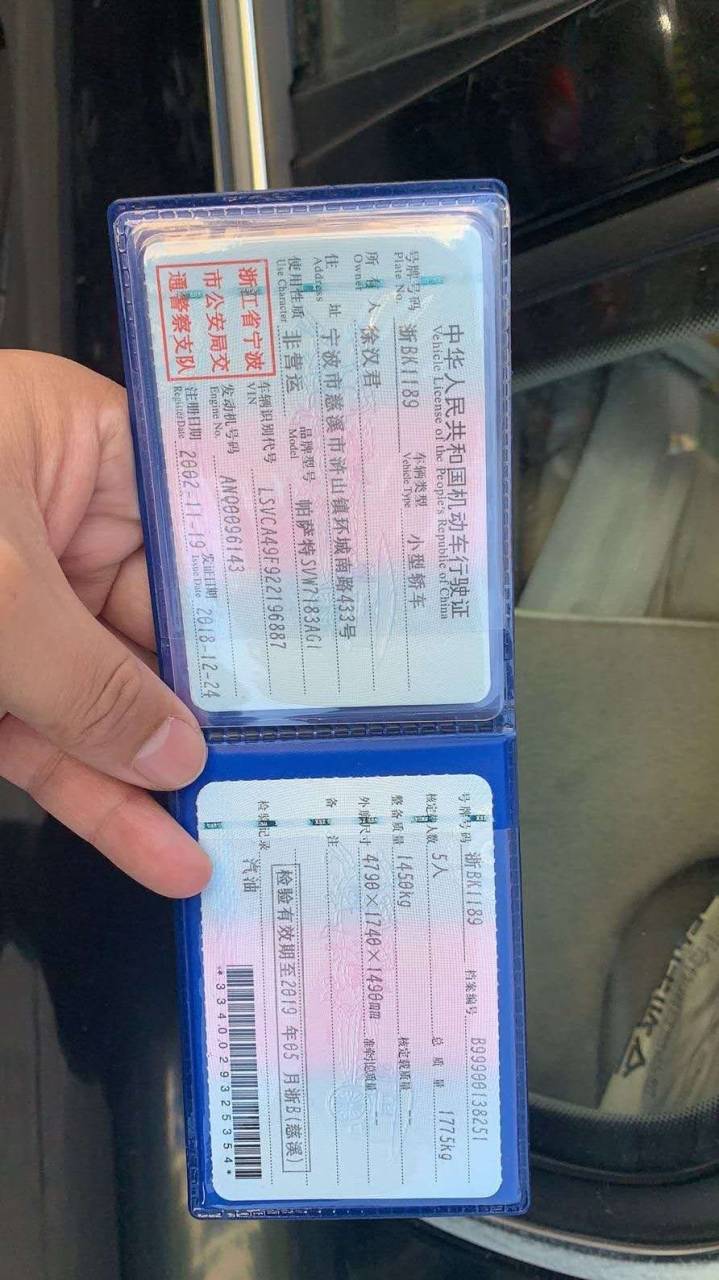 中华人民共和国机动车行驶证
Vehicle License of the People's Republic of China
号牌号码 浙BK1189 车辆类型 小型轿车
Plate No. Vehicle Type
所有人 徐汉君
Owner
住址 宁波市慈溪市浒山镇环城南路433号
Address
使用性质 非营运 品牌型号 帕萨特SVW7183AGI
Use Character Model
浙江省宁波
市公安局交
通警察支队
车辆识别代号 LSVCA49F922196887
VIN
发动机号码 ANQ0096143
Engine No.
注册日期 2002-11-19 发证日期 2018-12-24
Register Date Issue Date
号牌号码 浙BK1189 档案编号 B99900138251
核定载人数 5人 总质量 1775kg
整备质量 1450kg 核定载质量 --
外廓尺寸 4790×1740×1490mm 准牵引总质量 --
备注
检验有效期至2019年05月浙B(慈溪)
检验记录 汽油
*3340029325354*